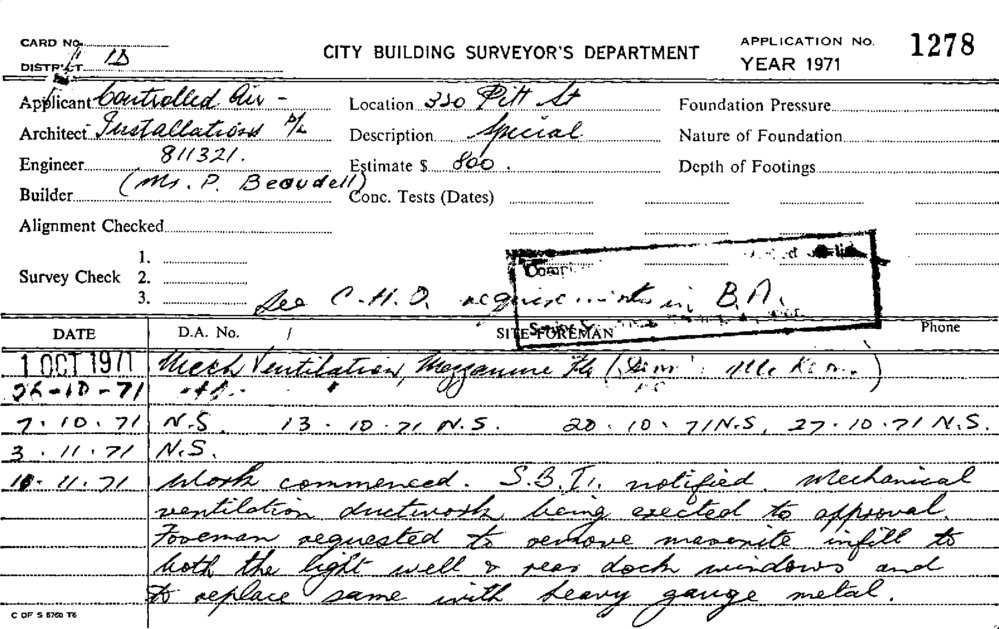 CARD No.
DISTRICT 1D
CITY BUILDING SURVEYOR'S DEPARTMENT
APPLICATION No. 1278
YEAR 1971
Applicant Controlled Air -
Architect Installations P/L
Engineer 811321.
Builder (Mr. P. Beaudell)
Alignment Checked
Survey Check 1.
2.
3.
Location 320 Pitt St
Description Special
Estimate $ 800.
Conc. Tests (Dates)
Foundation Pressure
Nature of Foundation
Depth of Footings
See C.H.O. requirements in B.A.
DATE D.A. No. / SITE FOREMAN Phone
1 OCT 1971 Mech Ventilation, Mezzanine Flr
7.10.71 N.S. 13.10.71 N.S. 20.10.71 N.S. 27.10.71 N.S.
3.11.71 N.S.
10.11.71 Work commenced. S.B.I. notified. Mechanical
ventilation ductwork being erected to approval.
Foreman requested to remove masonite infill to
both the light well & rear dock windows and
to replace same with heavy gauge metal.
C OF S 5760 T6